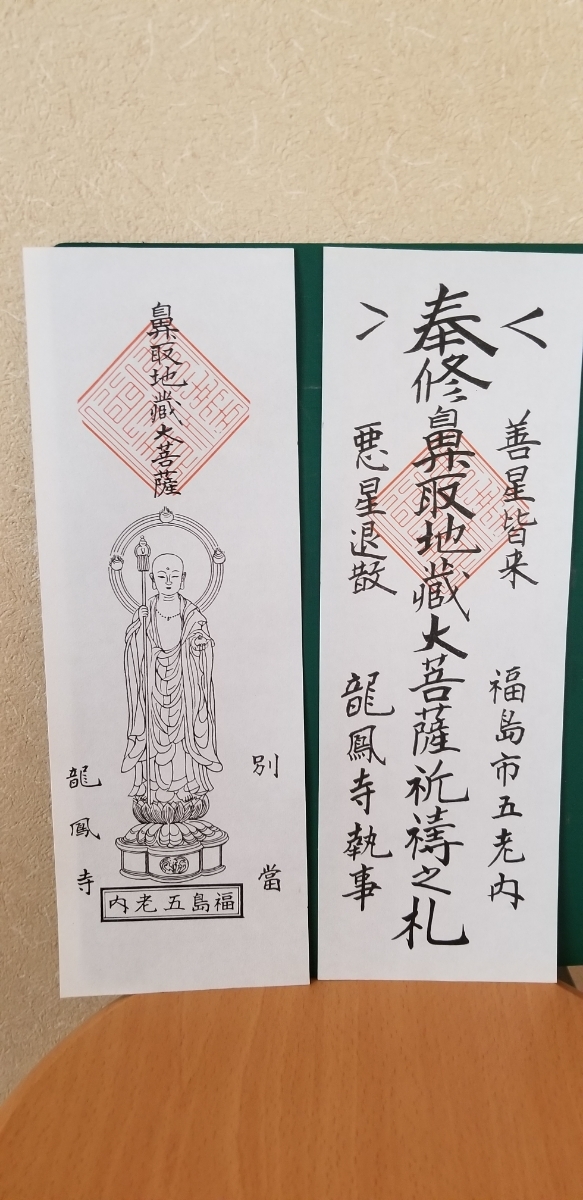 鼻取地藏大菩薩
別當
龍鳳寺
福島五老内
奉修鼻取地藏大菩薩祈禱之札
善星皆来
悪星退散
福島市五老内
龍鳳寺執事